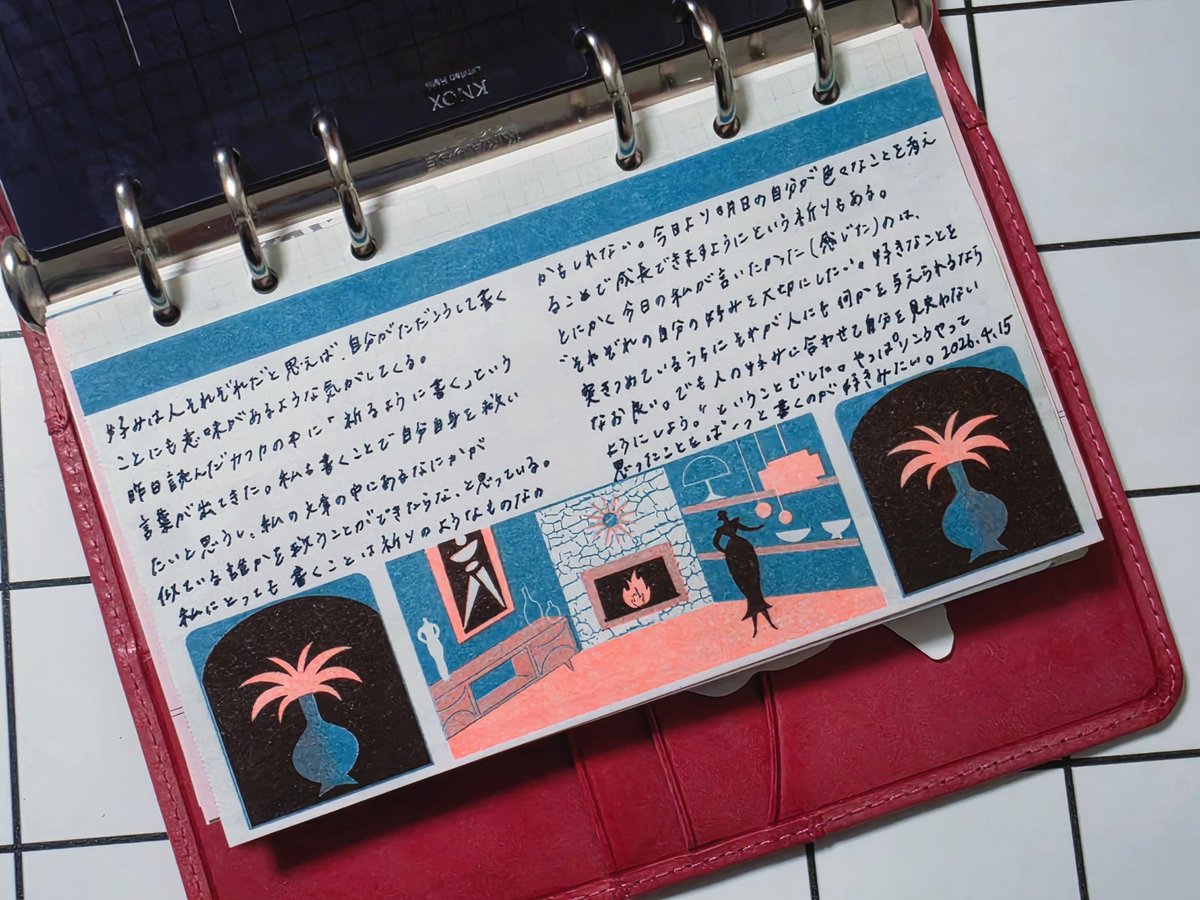 KNOX
好みは人それぞれだと思えば、自分がただこうして書く
ことにも意味があるような気がしてくる。
昨日読んだカフカの中に「祈るように書く」という
言葉が出てきた。私も書くことで自分自身を救い
たいと思うし、私の文章の中にあるなにかが
似ている誰かを救うことができたらな、と思っている。
私にとっても書くことは祈りのようなものなの
かもしれない。今日より明日の自分が色々なことを考え
ることで成長できますようにという祈りもある。
とにかく今日の私が言いたかった(感じた)のは、
“それぞれの自分の好みを大切にしたい。好きなことを
突きつめているうちにそれが人にも何かを与えられるなら
なお良い。でも人の好みに合わせて自分を見失わない
ようにしよう。”ということでした。やっぱりこうやって
思ったことをばーっと書くのが好きみたい。2026.4.15